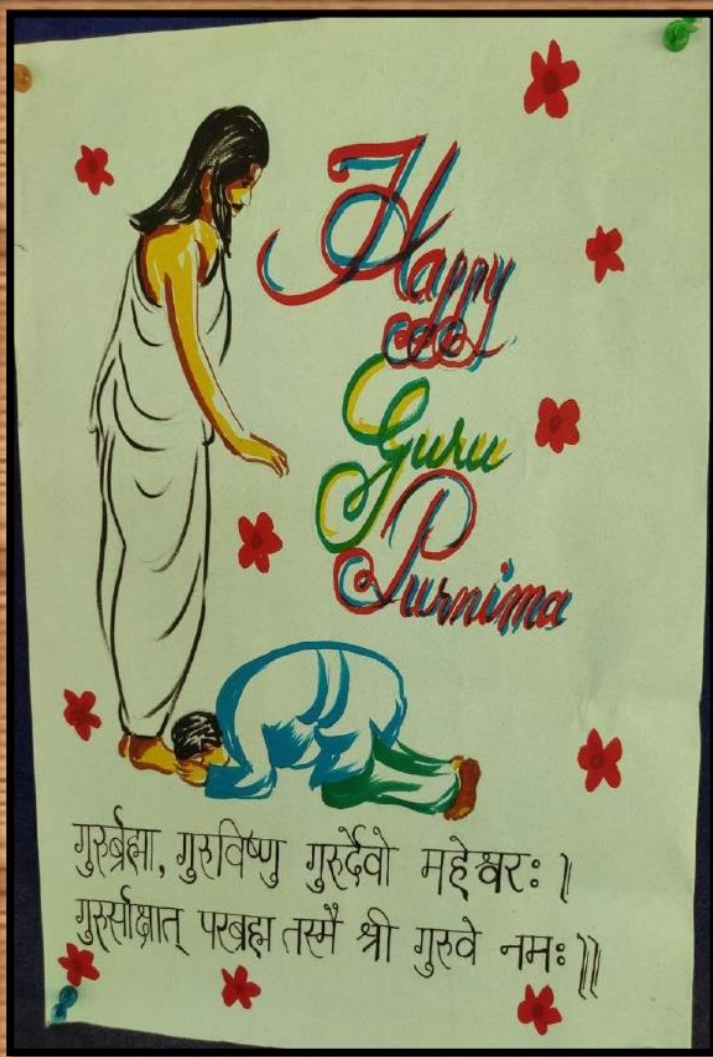 Happy
Guru
Purnima
गुरुर्ब्रह्मा, गुरुविष्णु गुरुर्देवो महेश्वरः।
गुरुर्साक्षात् परब्रह्म तस्मै श्री गुरुवे नमः॥